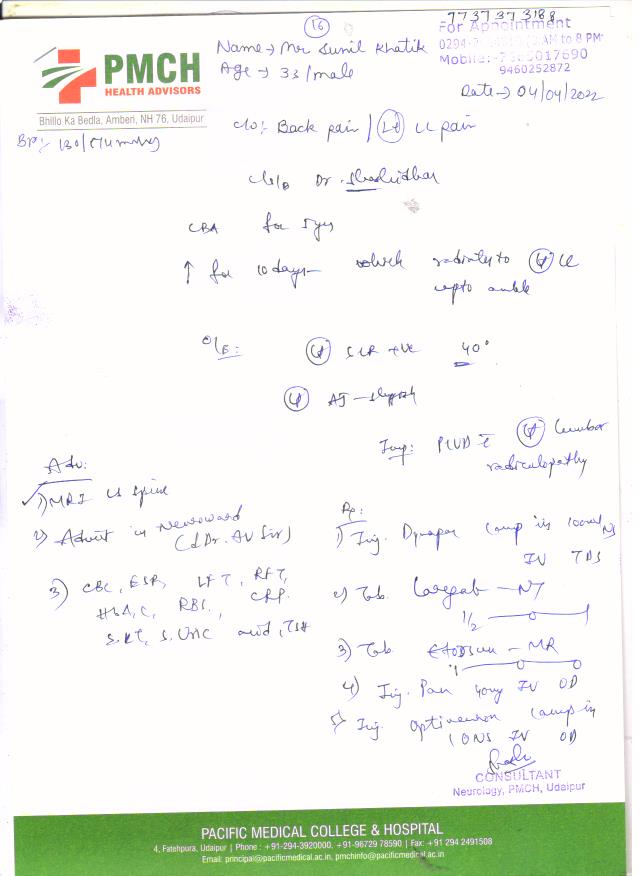 16
7737373188
For Appointment
0294- AM to 8 PM
Mobile:- 017690
9460252872
PMCH
HEALTH ADVISORS
Bhillo Ka Bedla, Amberi, NH 76, Udaipur
Name → Mr Sunil Khatik
Age → 33/male
Date → 04/04/2022
BP:- 130/ mmHg
c/o:- Back pain / Lt LL pain
Dr.
CBA for 5 yrs
↑ for 10 days radiating to LL
upto ankle
O/E: SLR +ve 40°
AJ -
Imp: PIVD c̄ Lumbar
radiculopathy
Adv:
1) MRI LS Spine
2) Admit in Neuroward
(d Dr. AV Sir)
3) CBC, ESR, LFT, RFT,
HbA1C, RBS, CRP,
S. Uric acid, TSH
Rp:
1) Inj. Dynapar 1 amp in 100ml NS
IV TDS
2) Tab. - NT
1/2 — 0 — 1
3) Tab - MR
1 — 0 — 0
4) Inj. Pan 40mg IV OD
5) Inj. Optineuron 1 amp in
NS IV OD
CONSULTANT
Neurology, PMCH, Udaipur
PACIFIC MEDICAL COLLEGE & HOSPITAL
4, Fatehpura, Udaipur | Phone : +91-294-3920000, +91-96729 78590 | Fax: +91 294 2491508
Email: principal@pacificmedical.ac.in, pmchinfo@pacificmedical.ac.in